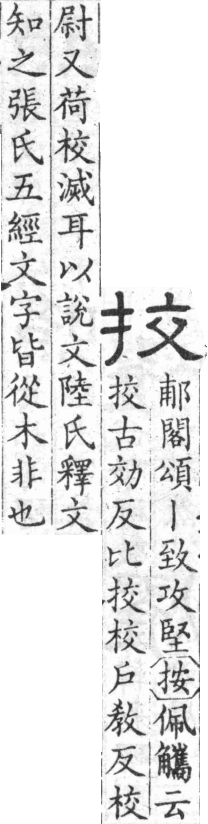 挍
郙閣頌丨致攻堅按佩觿云
挍古効反比挍校戶敎反校
尉又荷校滅耳以說文陸氏釋文
知之張氏五經文字皆從木非也